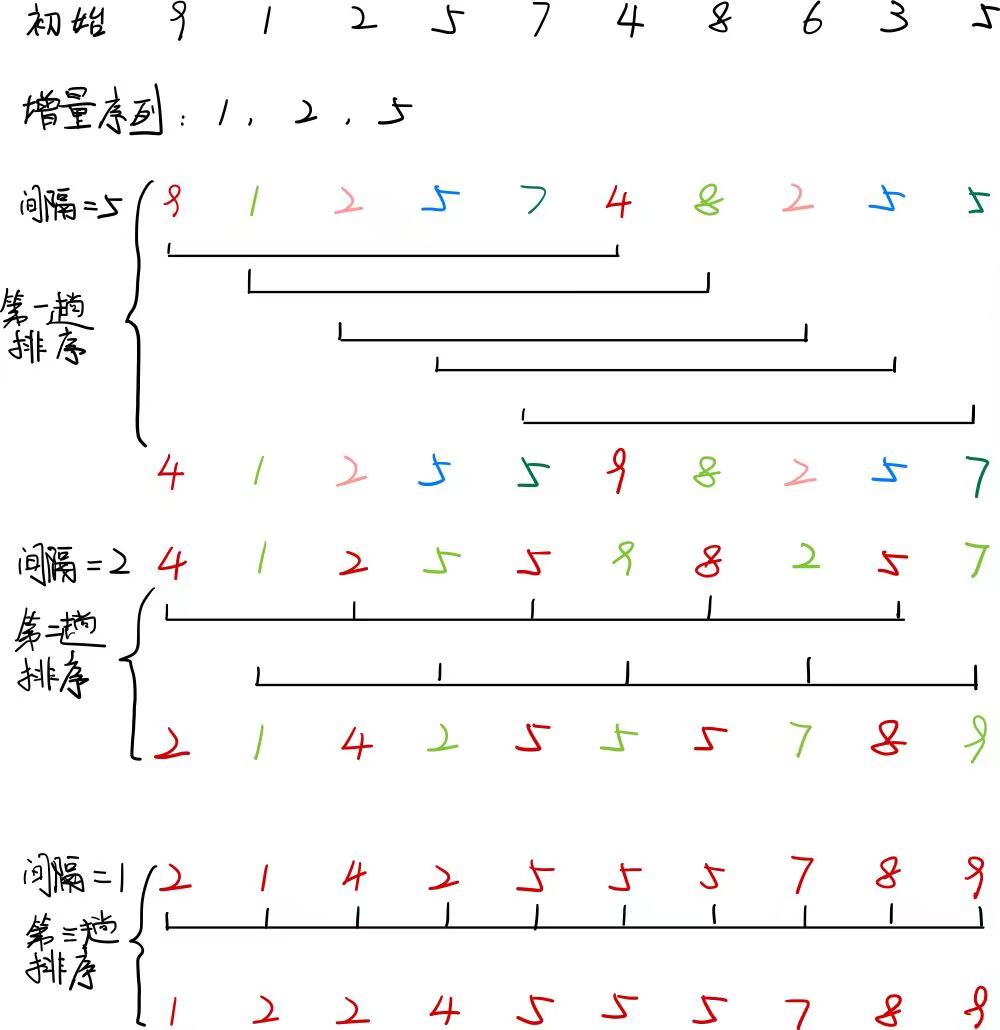 初始 9 1 2 5 7 4 8 6 3 5
增量序列：1, 2, 5
间隔=5 9 1 2 5 7 4 8 2 5 5
第一趟
排序
4 1 2 5 5 9 8 2 5 7
间隔=2 4 1 2 5 5 9 8 2 5 7
第二趟
排序
2 1 4 2 5 5 5 7 8 9
间隔=1 2 1 4 2 5 5 5 7 8 9
第三趟
排序
1 2 2 4 5 5 5 7 8 9